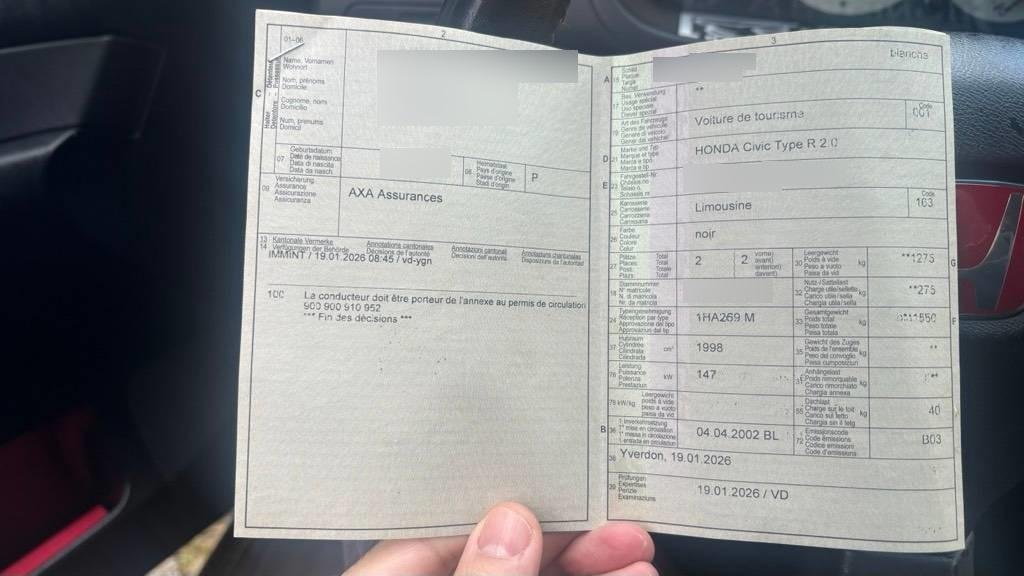 2
01-06
Name, Vornamen
Wohnort
Nom, prénoms
Domicile
Cognome, nomi
Domicilio
Num, prenums
Domicil
C
07
Geburtsdatum
Date de naissance
Data di nascita
Data da nasch.
08
Heimatstaat
Pays d'origine
Paese d'origine
Stadi d'origin
P
09
Versicherung
Assurance
Assicurazione
Assicuranza
AXA Assurances
13
14
Kantonale Vermerke
Verfügungen der Behörde
Annotations cantonales
Décisions de l'autorité
Annotazioni cantonali
Decisioni dell'autorità
Annotaziuns chantunalas
Disposiziuns da l'autoritad
IMMINT / 19.01.2026 08:45 / vd-ygn
100 La conducteur doit être porteur de l'annexe au permis de circulation
900 900 910 952
*** Fin des décisions ***
3
blanche
A 15
Schild
Plaque
Targa
Numer
17
Bes. Verwendung
Usage spécial
Uso speciale
Diever spezial
**
19
Art des Fahrzeugs
Genre de véhicule
Genere di veicolo
Gener da vehichel
Voiture de tourisme
Code
001
D 21
Marke und Typ
Marque et type
Marca e tipo
Marca e tip
HONDA Civic Type R 2.0
E 23
Fahrgestell-Nr.
Châssis no
Telaio n.
Schassis nr.
25
Karosserie
Carrosserie
Carrozzeria
Carrosaria
Limousine
Code
163
26
Farbe
Couleur
Colore
Colur
noir
27
Plätze Total
Places: Total
Posti: Totale
Plazs: Total
2
2
vorne)
avant)
anteriori)
davant)
30
Leergewicht
Poids à vide
Peso a vuoto
Paisa da vid
kg
**1275
G
18
Stammnummer
N° matricule
N. di matricola
Nr. da matricla
32
Nutz-/Sattellast
Charge utile/sellette
Carico utile/sella
Chargia utila/sella
kg
**275
24
Typengenehmigung
Réception par type
Approvazione del tipo
Approvaziun dal tip
1HA269 M
33
Gesamtgewicht
Poids total
Peso totale
Paisa totala
kg
**1550
F
37
Hubraum
Cylindrée
Cilindrata
Cilindrada
cm³
1998
35
Gewicht des Zuges
Poids de l'ensemble
Peso del convoglio
Paisa cumposiziun
kg
**
76
Leistung
Puissance
Potenza
Prestaziun
kW
147
31
Anhängelast
Poids remorquable
Carico rimorchiato
Chargia annexa
kg
78 kW/kg
Leergewicht
poids à vide
peso a vuoto
paisa da vid
55
Dachlast
Charge sur le toit
Carico sul tetto
Chargia sin il tetg
kg
40
B 36
1. Inverkehrsetzung
1re mise en circulation
1a messa in circolazione
1. entrada en circulaziun
04.04.2002 BL
72
Emissionscode
Code émissions
Codice emissioni
Code d'emissiuns
B03
38 Yverdon, 19.01.2026
39
Prüfungen
Expertises
Perizie
Examinaziuns
19.01.2026 / VD